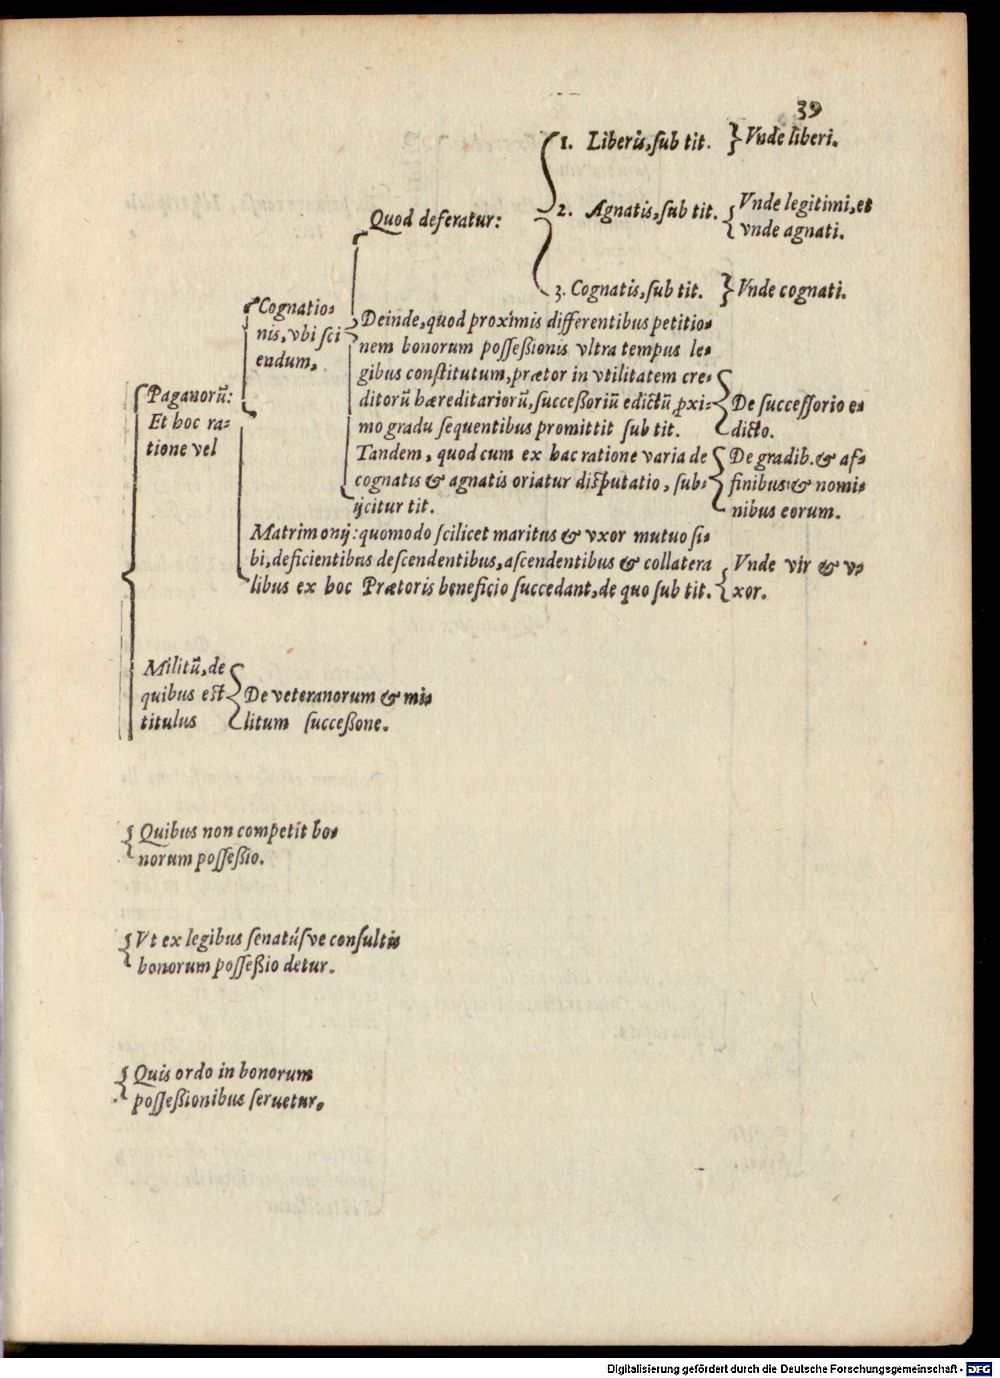 39
1. Liberis, ſub tit. } Vnde liberi.
Quod deferatur:
2. Agnatis, ſub tit. { Vnde legitimi, et
vnde agnati.
3. Cognatis, ſub tit. } Vnde cognati.
Cognatio-
nis, vbi ſci
endum,
Deinde, quod proximis differentibus petitio-
nem bonorum poſſeßionis vltra tempus le-
gibus conſtitutum, prætor in vtilitatem cre-
ditorũ hæreditariorũ, ſucceßoriũ edictũ ꝓxi-
mo gradu ſequentibus promittit ſub tit.
De ſucceſſorio e-
dicto.
Tandem, quod cum ex hac ratione varia de
cognatis & agnatis oriatur diſputatio, ſub-
ijcitur tit.
De gradib. & af-
finibus: & nomi-
nibus eorum.
Paganorũ:
Et hoc ra-
tione vel
Matrimonij: quomodo ſcilicet maritus & vxor mutuo ſi-
bi, deficientibus deſcendentibus, aſcendentibus & collatera
libus ex hoc Prætoris beneficio ſuccedant, de quo ſub tit.
Vnde vir & v-
xor.
Militũ, de
quibus eſt
titulus
De veteranorum & mi-
litum ſucceßone.
Quibus non competit bo-
norum poſſeßio.
Vt ex legibus ſenatúſve conſultis
bonorum poſſeßio detur.
Quis ordo in bonorum
poſſeßionibus ſeruetur.
Digitalisierung gefördert durch die Deutsche Forschungsgemeinschaft - DFG